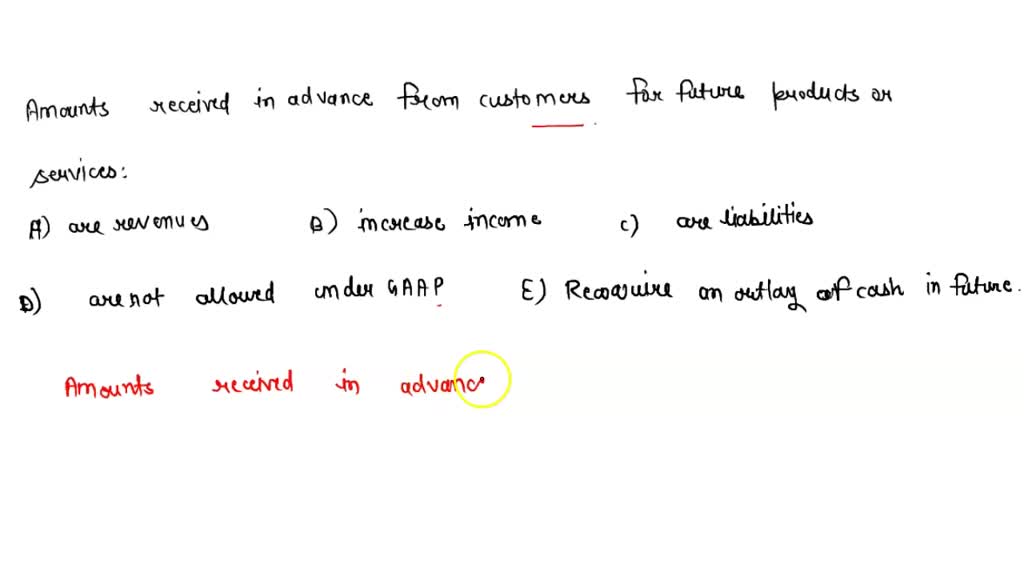 Amounts received in advance from customers for future products or
services:
A) are revenues B) increase income c) are liabilities
D) are not allowed under GAAP E) Require an outlay of cash in future.
Amounts received in advanc